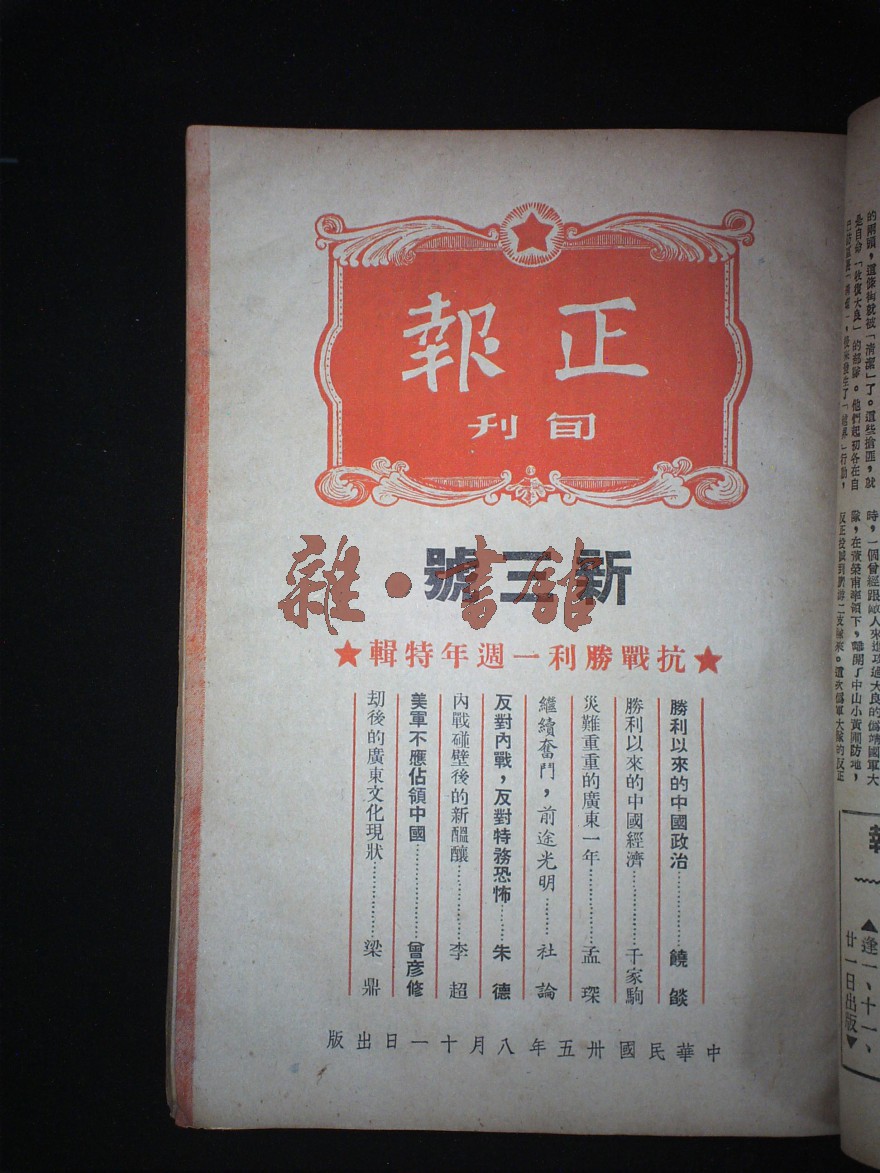 正報
旬刊
新三號
雜·書館
★抗戰勝利一週年特輯★
勝利以來的中國政治………饒 燄
勝利以來的中國經濟………千家駒
災難重重的廣東一年………孟 琛
繼續奮鬥，前途光明………社 論
反對內戰，反對特務恐怖……朱 德
內戰碰壁後的新醞釀………李 超
美軍不應佔領中國………曾彥修
刧後的廣東文化現狀………梁 鼎
中華民國卅五年八月十一日出版
的兩頭，這條街就被「清潔」了。這些搶匪，就
是自命「收復大良」的部隊。他們起初各在自
時，一個曾經跟敵人來進攻過大良的僞靖國軍大
隊，在黃榮甫率領下，離開了中山小黃圃防地，
▲逢一、十一、
廿一日出版▼